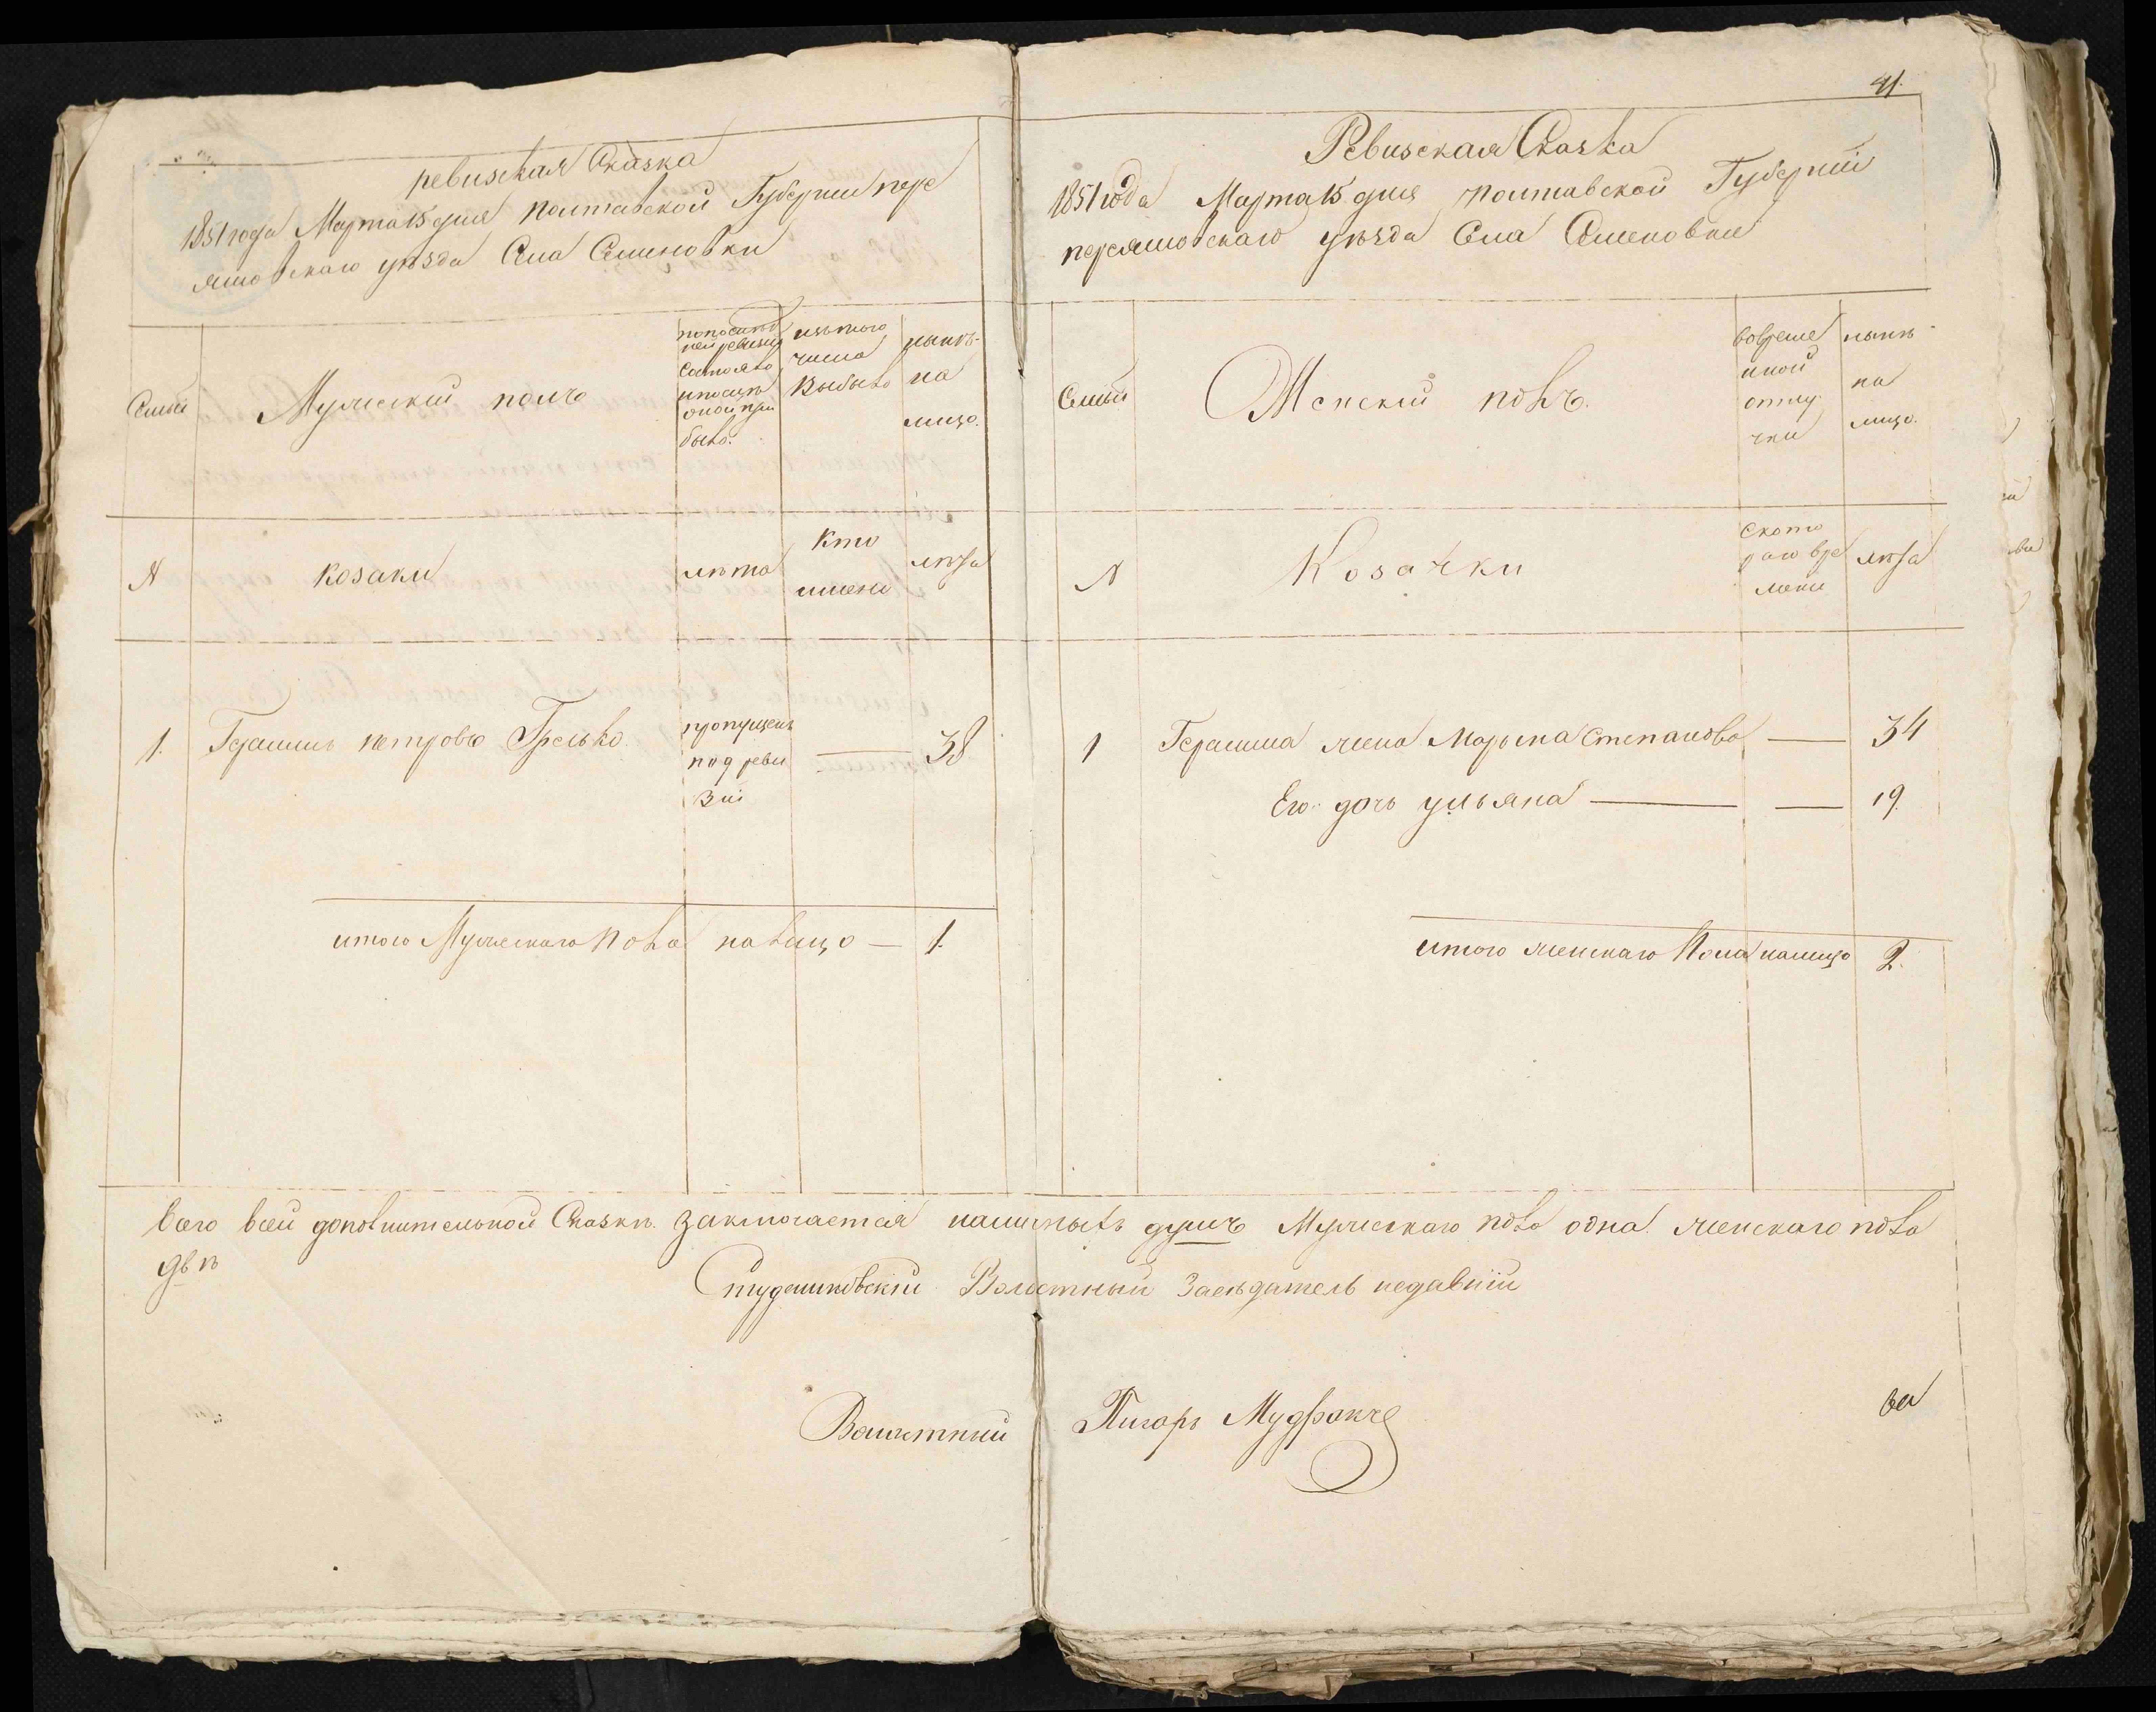 ревизская Сказка
1851 года Марта 15 дня Полтавской Губернии пере
яславскаго уѣзда Села Семиновки
Семьи
Мужескій полъ
попослѣд
ней ревизіи
состояло
и послѣ
оной при
было.
изътого
числа
выбыло
нынѣ
на
лицо.
№
козаки
лѣта
кто
имено
лѣта
1. Герасимъ петровъ Грелько
пропущенъ
под реви
зіи
38
итого Мужескаго пола налицо — 1.
41.
Ревизская Сказка
1851 года Марта 15 дня Полтавской Губерніи
переяславскаго уѣзда Села Семеновки
Семьи
Женскій полъ.
вовреме
нной
отлу
чки
нынѣ
на
лицо.
№
Козачки
Ското
раго вре
мени
лѣта
1 Герасима жена Марьина Степанова — 34
Его дочь ульяна — — 19.
итого женскаго Пола налицо 2.
Всего всей дополнительной Сказкѣ заключается наличныхъ душъ Мужескаго пола одна женскаго пола
двѣ
Волостный Засѣдатель
Волостный Писарь